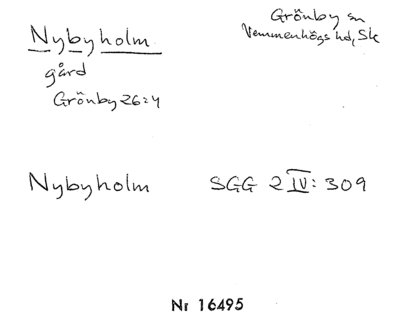 Nybyholm
gård
Grönby 26:4
Grönby sn
Vemmenhögs hd, Sk
Nybyholm SGG 2 IV: 309
Nr 16495